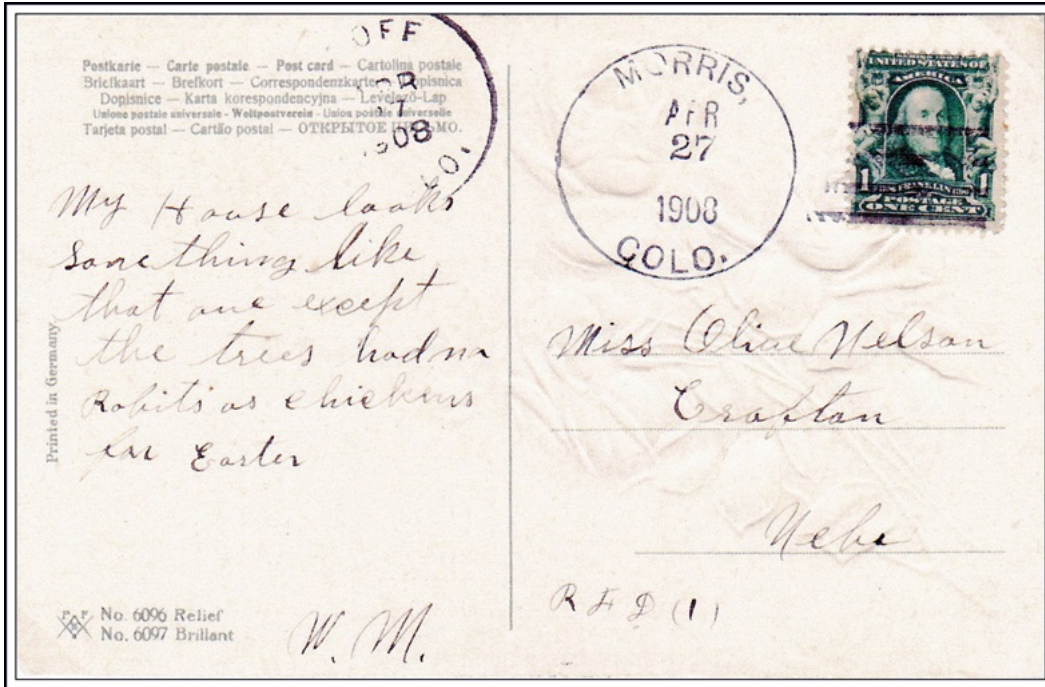 OFF
7
1908
LO.
Postkarte — Carte postale — Post card — Cartolina postale
Briefkaart — Brefkort — Correspondenzkarte — Dopisnica
Dopisnice — Karta korespondencyjna — Levelező-Lap
Unione postale universale - Weltpostverein - Union postale universelle
Tarjeta postal — Cartão postal — ОТКРЫТОЕ ПИСЬМО.
MORRIS,
APR
27
1908
COLO.
UNITED STATES OF
AMERICA
1 1
FRANKLIN
POSTAGE
ONE CENT
My House looks
some thing like
that one except
the trees had no
Robits or chickens
for Easter
W. M.
Miss Olive Nelson
Crofton
Nebr
R F D (1)
Printed in Germany
No. 6096 Relief
No. 6097 Brillant